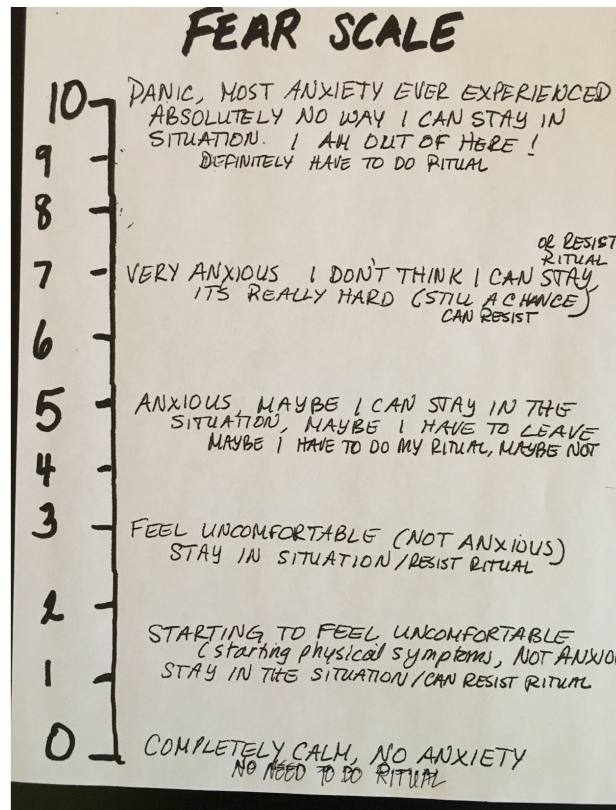 FEAR SCALE
10 PANIC, MOST ANXIETY EVER EXPERIENCED
ABSOLUTELY NO WAY I CAN STAY IN
SITUATION. I AM OUT OF HERE!
9 DEFINITELY HAVE TO DO RITUAL
8
OR RESIST
RITUAL
7 VERY ANXIOUS I DON'T THINK I CAN STAY,
IT'S REALLY HARD (STILL A CHANCE)
CAN RESIST
6
5 ANXIOUS, MAYBE I CAN STAY IN THE
SITUATION, MAYBE I HAVE TO LEAVE
MAYBE I HAVE TO DO MY RITUAL, MAYBE NOT
4
3 FEEL UNCOMFORTABLE (NOT ANXIOUS)
STAY IN SITUATION/RESIST RITUAL
2
STARTING TO FEEL UNCOMFORTABLE
(starting physical symptoms, NOT ANXIO
1 STAY IN THE SITUATION/CAN RESIST RITUAL
0 COMPLETELY CALM, NO ANXIETY
NO NEED TO DO RITUAL